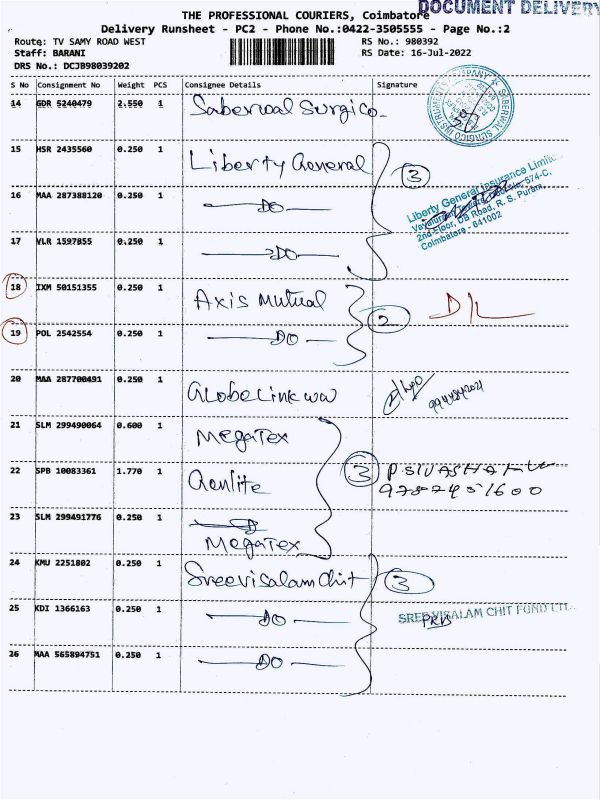 DOCUMENT DELIVERY
THE PROFESSIONAL COURIERS, Coimbatore
Delivery Runsheet - PC2 - Phone No.:0422-3505555 - Page No.:2
Route: TV SAMY ROAD WEST RS No.: 980392
Staff: BARANI RS Date: 16-Jul-2022
DRS No.: DCJB98039202
S No Consignment No Weight PCS Consignee Details Signature
14 GDR 5240479 2.550 1 Saberwal Surgico
SABERWAL SURGICO INSTRUMENTS COMPANY
15 HSR 2435560 0.250 1 Liberty General 3
16 MAA 287388120 0.250 1 DO
Liberty General Insurance Limite
2nd Floor, DB Road, R. S. Puram,
Coimbatore - 641002
17 VLR 1597855 0.250 1 DO
18 IXM 50151355 0.250 1 Axis Mutual 2
19 POL 2542554 0.250 1 DO
20 MAA 287700491 0.250 1 Globelink ww
21 SLM 299490064 0.600 1 MegaTex
22 SPB 10083361 1.770 1 3
9787451600
23 SLM 299491776 0.250 1 MegaTex
24 KMU 2251802 0.250 1 Sreevisalam Chit 3
25 KDI 1366163 0.250 1 DO
SREE VISALAM CHIT FUND LTD.
26 MAA 565894751 0.250 1 DO